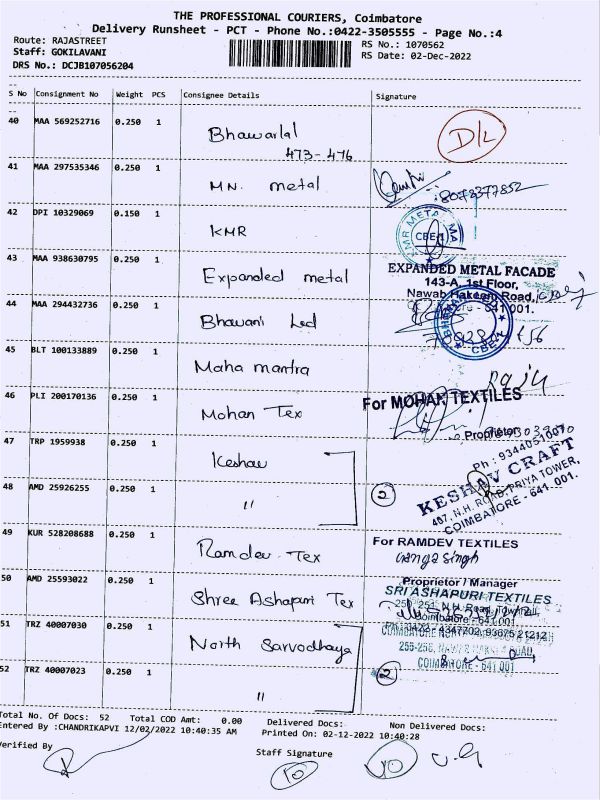 THE PROFESSIONAL COURIERS, Coimbatore
Delivery Runsheet - PCT - Phone No.:0422-3505555 - Page No.:4
Route: RAJASTREET
Staff: GOKILAVANI
DRS No.: DCJB107056204
RS No.: 1070562
RS Date: 02-Dec-2022
S No Consignment No Weight PCS Consignee Details Signature
40 MAA 569252716 0.250 1 Bhawarlal D/L
473-476
41 MAA 297535346 0.250 1 MN. metal 8072377852
42 DPI 10329069 0.150 1 KMR KMR META CBE
43 MAA 938630795 0.250 1 Expanded metal
EXPANDED METAL FACADE
143-A, 1st Floor,
Nawab Hakeem Road,
641 001.
44 MAA 294432736 0.250 1 Bhavani Led CBE
45 BLT 100133889 0.250 1 Maha mantra Raju
46 PLI 200170136 0.250 1 Mohan Tex
For MOHAN TEXTILES
Proprietor
47 TRP 1959938 0.250 1 Keshav
Ph : 9344051007
KESHAV CRAFT
467, N.H. ROAD, PRIYA TOWER,
COIMBATORE - 641 001.
48 AMD 25926255 0.250 1 " 2
49 KUR 528208688 0.250 1 Ramdev Tex
For RAMDEV TEXTILES
Singh
Proprietor / Manager
50 AMD 25593022 0.250 1 Shree Ashapuri Tex
SRI ASHAPURI TEXTILES
N.H. Road,
Coimbatore - 641 001
51 TRZ 40007030 0.250 1 North Sarvodhaya
COIMBATORE
255-256,
COIMBATORE - 641 001
52 TRZ 40007023 0.250 1 " 2
Total No. Of Docs: 52 Total COD Amt: 0.00 Delivered Docs: Non Delivered Docs:
Entered By :CHANDRIKAPVI 12/02/2022 10:40:35 AM Printed On: 02-12-2022 10:40:28
Verified By
Staff Signature